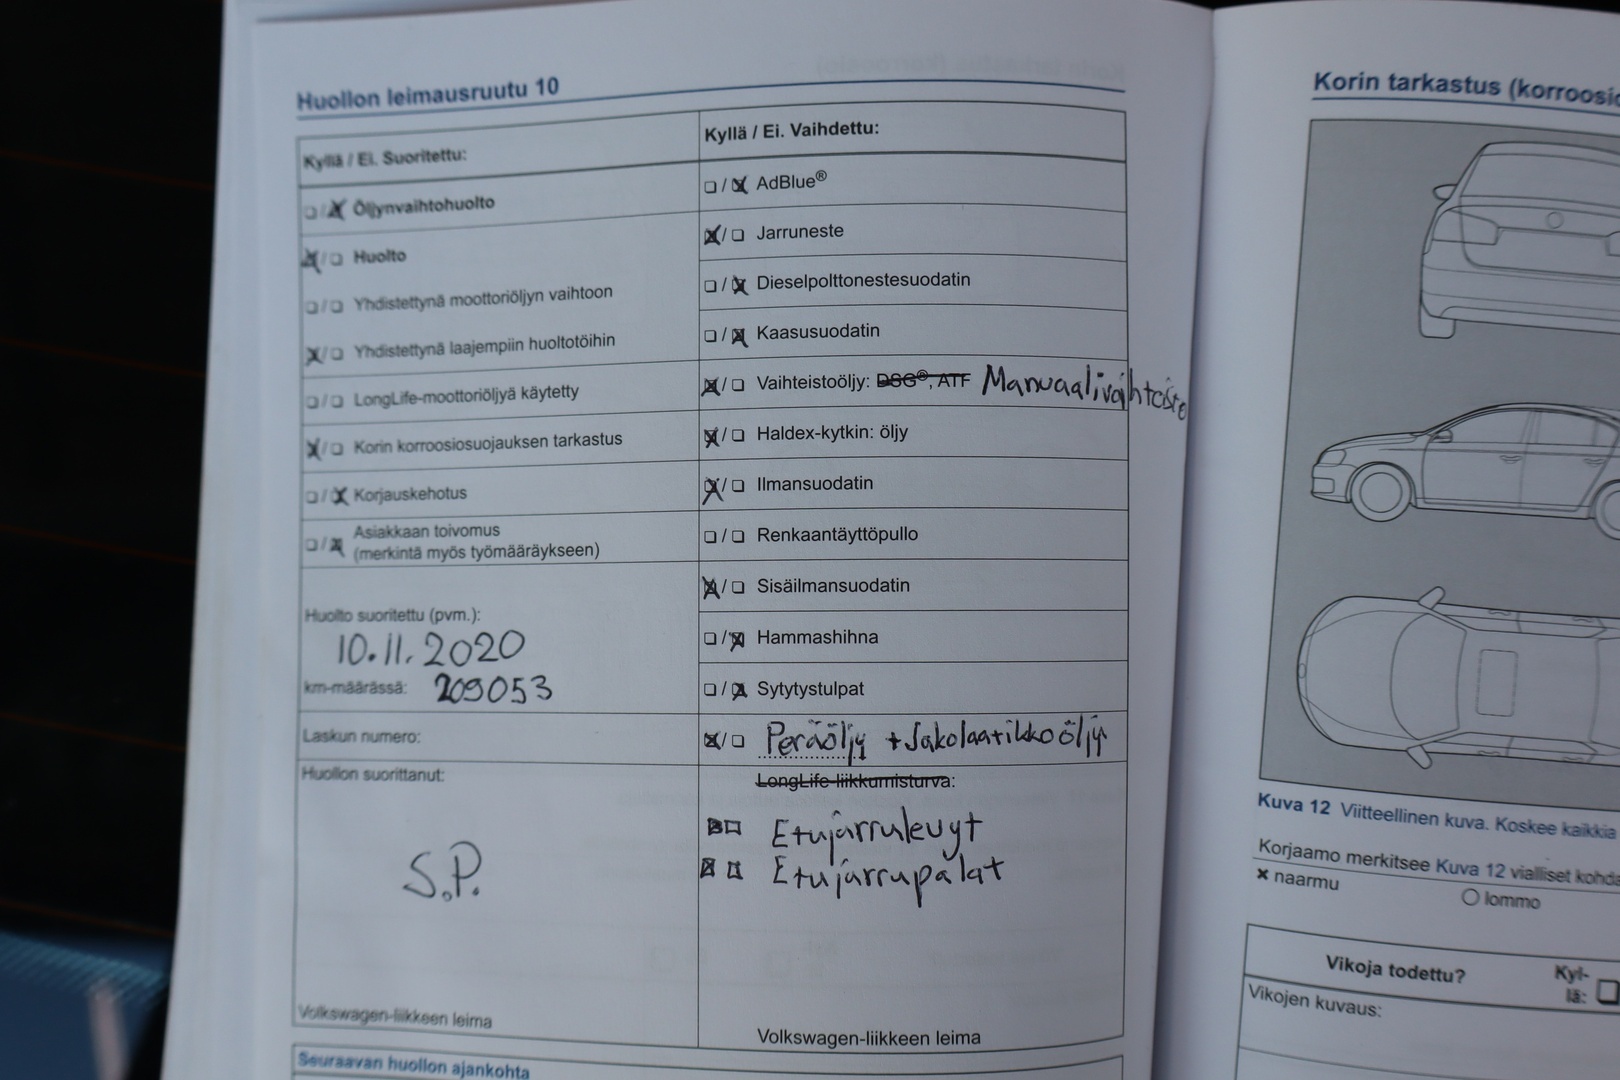 Huollon leimausruutu 10
Kyllä / Ei. Suoritettu:
Öljynvaihtohuolto
Huolto
Yhdistettynä moottoriöljyn vaihtoon
Yhdistettynä laajempiin huoltotöihin
LongLife-moottoriöljyä käytetty
Korin korroosiosuojauksen tarkastus
Korjauskehotus
Asiakkaan toivomus
(merkintä myös työmääräykseen)
Huolto suoritettu (pvm.):
10.11.2020
km-määrässä: 209053
Laskun numero:
Huollon suorittanut:
S.P.
Volkswagen-liikkeen leima
Kyllä / Ei. Vaihdettu:
AdBlue®
Jarruneste
Dieselpolttonestesuodatin
Kaasusuodatin
Vaihteistoöljy: DSG®, ATF Manuaalivaihteisto
Haldex-kytkin: öljy
Ilmansuodatin
Renkaantäyttöpullo
Sisäilmansuodatin
Hammashihna
Sytytystulpat
Peräöljy + Jakolaatikkoöljy
LongLife-liikkumisturva:
Etujarrulevyt
Etujarrupalat
Volkswagen-liikkeen leima
Seuraavan huollon ajankohta
Korin tarkastus (korroosio
Kuva 12 Viitteellinen kuva. Koskee kaikkia
Korjaamo merkitsee Kuva 12 vialliset kohda
× naarmu
lommo
Vikoja todettu?
Kyl-
lä:
Vikojen kuvaus: